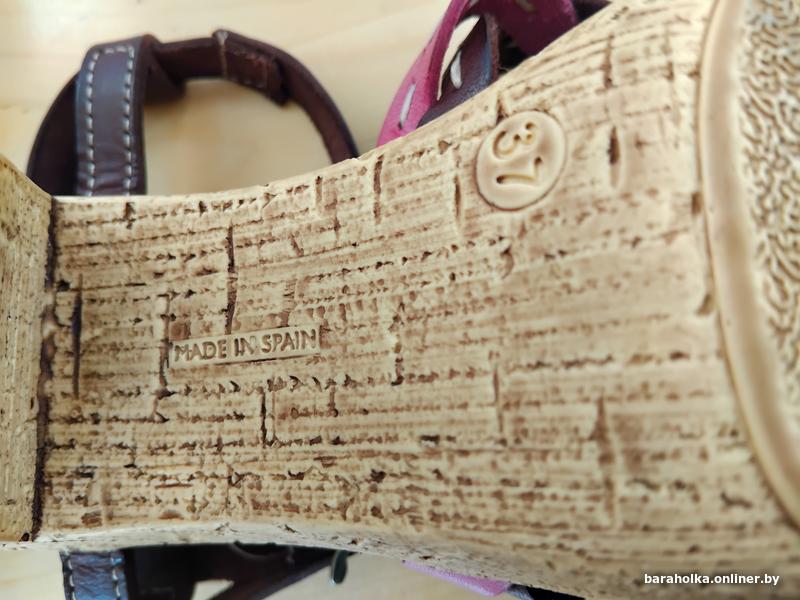 37
MADE IN SPAIN
baraholka.onliner.by